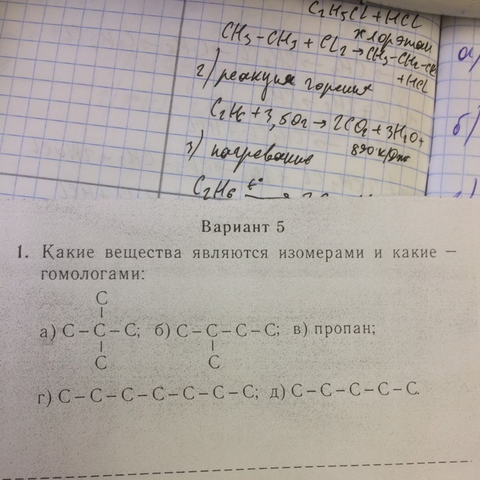 C₂H₅Cl + HCl
хлорэтан
CH₃-CH₃ + Cl₂ → CH₃-CH₂-Cl
+ HCl
2) реакция горения
C₂H₆ + 3,5O₂ → 2CO₂ + 3H₂O +
3) нагревание
C₂H₆ t° →
а)
б)
Вариант 5
1. Какие вещества являются изомерами и какие –
гомологами:
C
|
а) C – C – C; б) C – C – C – C; в) пропан;
| |
C C
г) C – C – C – C – C – C – C; д) C – C – C – C – C.